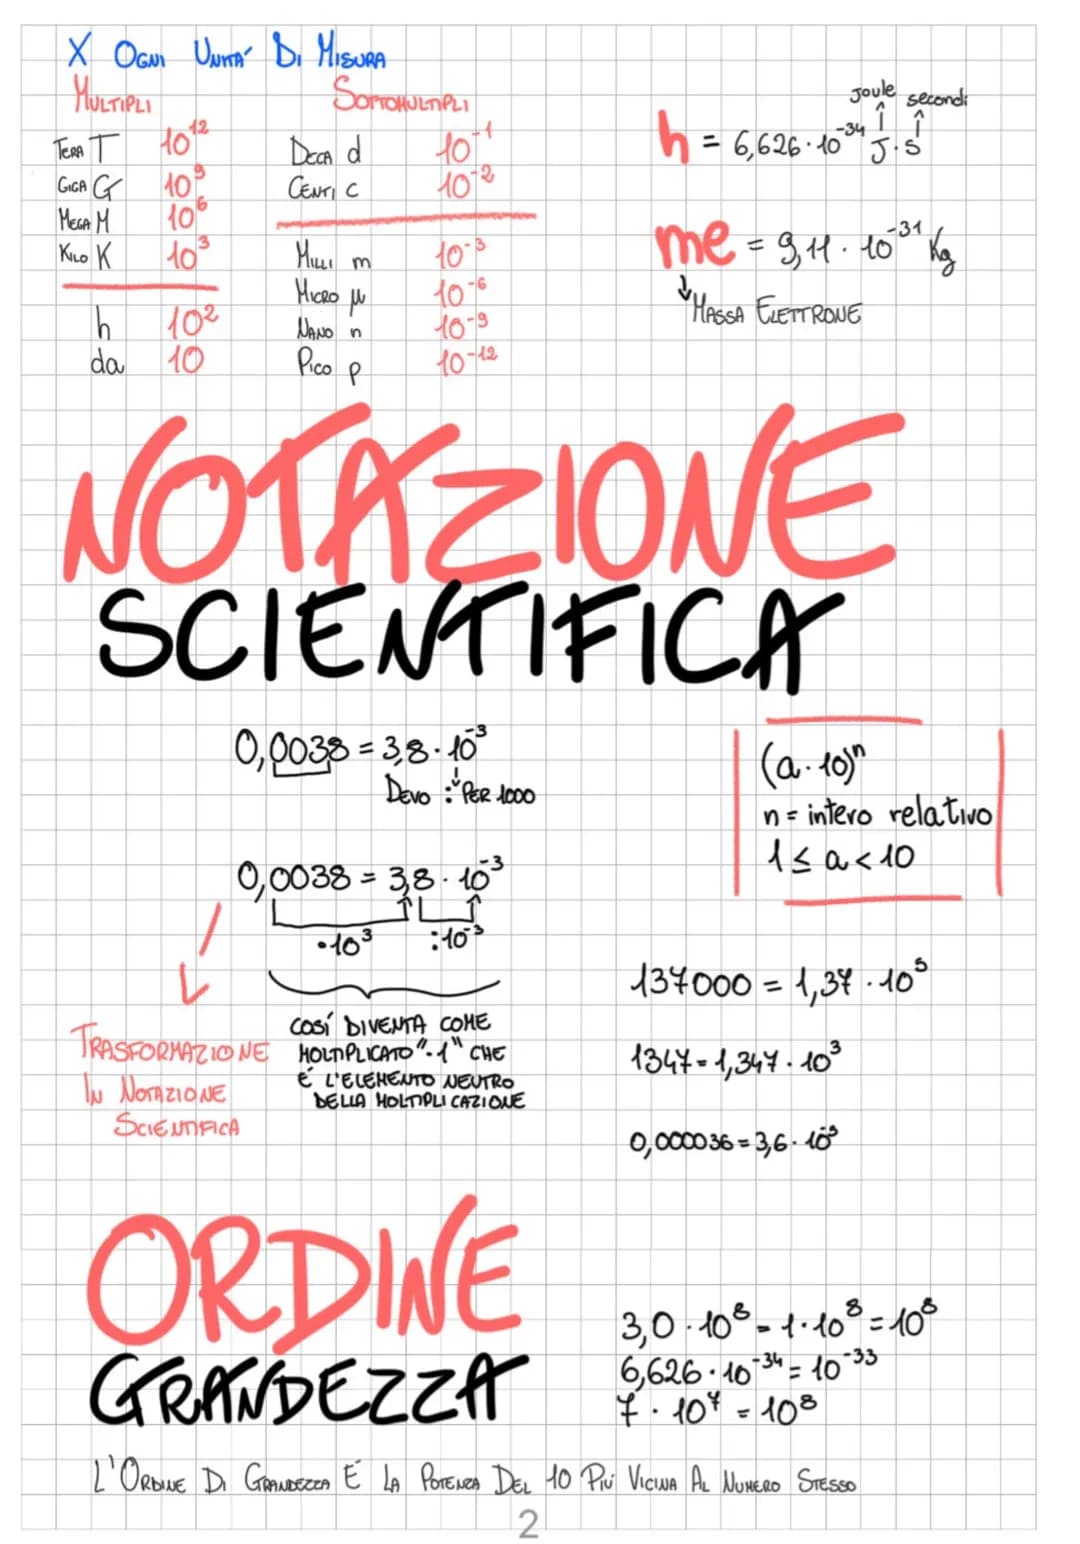 X OGNI UNITA' DI MISURA
MULTIPLI
TERA T 10¹²
GIGA G 10⁹
MEGA M 10⁶
KILO K 10³
h 10²
da 10
SOTTOMULTIPLI
DECA d 10⁻¹
CENTI c 10⁻²
MILLI m 10⁻³
MICRO μ 10⁻⁶
NANO n 10⁻⁹
PICO p 10⁻¹²
Joule secondi
h = 6,626·10⁻³⁴ J·s
me = 9,11·10⁻³¹ Kg
MASSA ELETTRONE
NOTAZIONE
SCIENTIFICA
0,0038 = 3,8·10⁻³
DEVO : PER 1000
0,0038 = 3,8·10⁻³
·10³ :10⁻³
TRASFORMAZIONE
IN NOTAZIONE
SCIENTIFICA
COSÍ DIVENTA COME
MOLTIPLICATO "·1" CHE
É L'ELEMENTO NEUTRO
DELLA MOLTIPLICAZIONE
(a·10)ⁿ
n = intero relativo
1 ≤ a < 10
137000 = 1,37·10⁵
1347 = 1,347·10³
0,000036 = 3,6·10⁻⁵
ORDINE
GRANDEZZA
3,0·10⁸ = 1·10⁸ = 10⁸
6,626·10⁻³⁴ = 10⁻³³
7·10⁷ = 10⁸
L'ORDINE DI GRANDEZZA É LA POTENZA DEL 10 PIÚ VICINA AL NUMERO STESSO
2